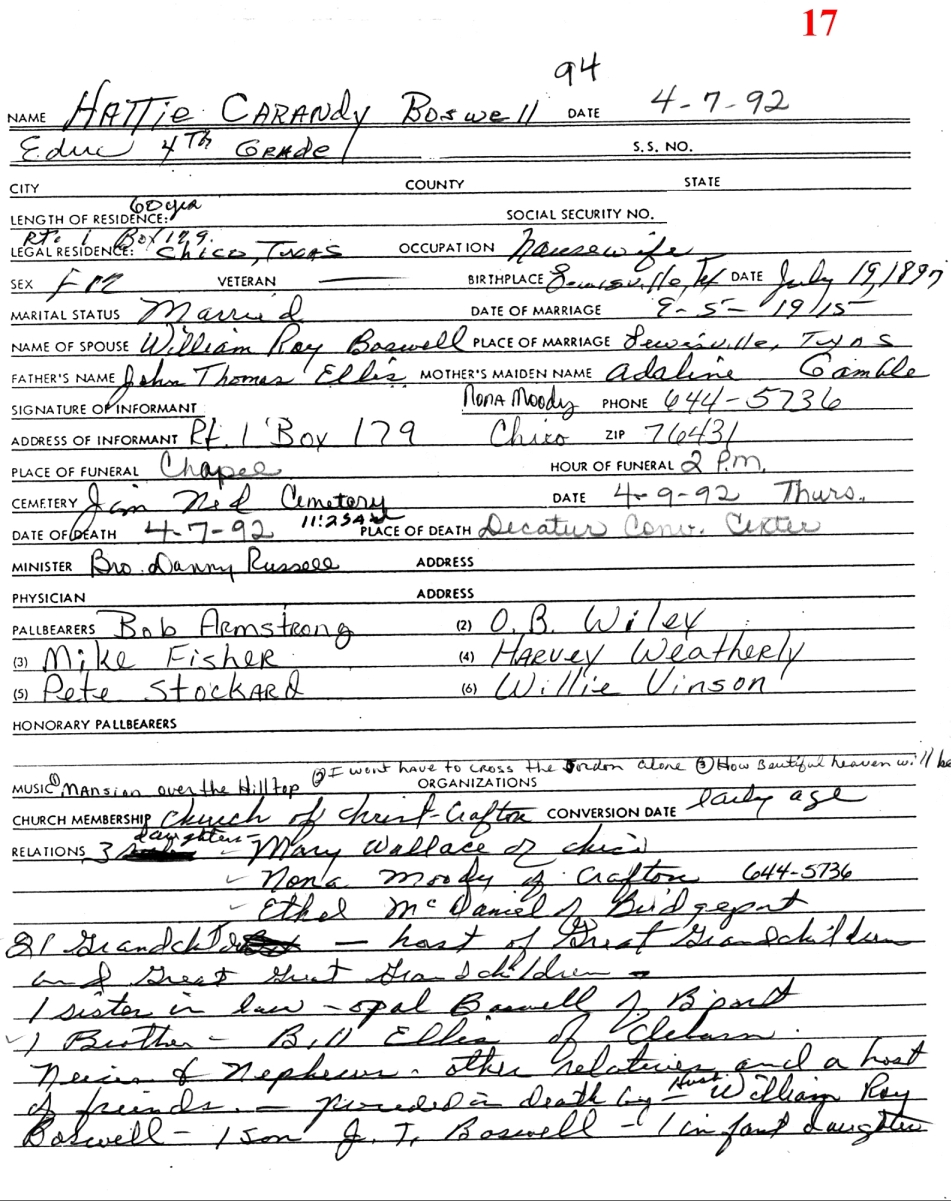 17
94
NAME HATTie CARANDy Boswell DATE 4-7-92
Educ 4Th GRAde S.S. NO.
CITY COUNTY STATE
LENGTH OF RESIDENCE: 60 yrs SOCIAL SECURITY NO.
Rt. 1 Box 179
LEGAL RESIDENCE: Chico, Texas OCCUPATION Housewife
SEX Fm VETERAN — BIRTHPLACE Lewisville, Tx DATE July 19, 1897
MARITAL STATUS Married DATE OF MARRIAGE 9-5-1915
NAME OF SPOUSE William Roy Boswell PLACE OF MARRIAGE Lewisville, Texas
FATHER'S NAME John Thomas Ellis MOTHER'S MAIDEN NAME Adaline Gamble
SIGNATURE OF INFORMANT Nona Moody PHONE 644-5736
ADDRESS OF INFORMANT Rt. 1 Box 179 Chico ZIP 76431
PLACE OF FUNERAL Chapel HOUR OF FUNERAL 2 P.m.
CEMETERY Jim Ned Cemetery DATE 4-9-92 Thurs.
DATE OF DEATH 4-7-92 11:25AM PLACE OF DEATH Decatur Conv. Center
MINISTER Bro. Danny Russell ADDRESS
PHYSICIAN ADDRESS
PALLBEARERS Bob Armstrong (2) O. B. Wiley
(3) Mike Fisher (4) HARvey Weatherly
(5) Pete StockARd (6) Willie Vinson
HONORARY PALLBEARERS
② I wont have to cross the Jordon alone ③ How Beautiful heaven will be
MUSIC ① Mansion over the Hilltop ORGANIZATIONS
CHURCH MEMBERSHIP Church of Christ-Crafton CONVERSION DATE early age
RELATIONS 3 daughters - Mary Wallace of Chico
Nona Moody of Crafton 644-5736
Ethel McDaniel of Bridgeport
21 Grandchildren — host of Great Grandchildren
and Great Great Grandchildren -
1 sister in law - opal Boswell of B'port
1 Brother - Bill Ellis of
Neices & Nephews - other relatives and a host
of friends. — preceded in death by - Husb. William Roy
Boswell - 1 son J. T. Boswell - 1 infant daughter